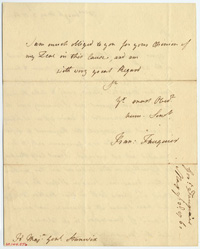 I am much obliged to you for your Opinion of
my Dear in this Cause, and am
with very great Regard
Sr
Yr most Obedt
hum: Servt
Fran: Fauquier
To Majr Genl Stanwix